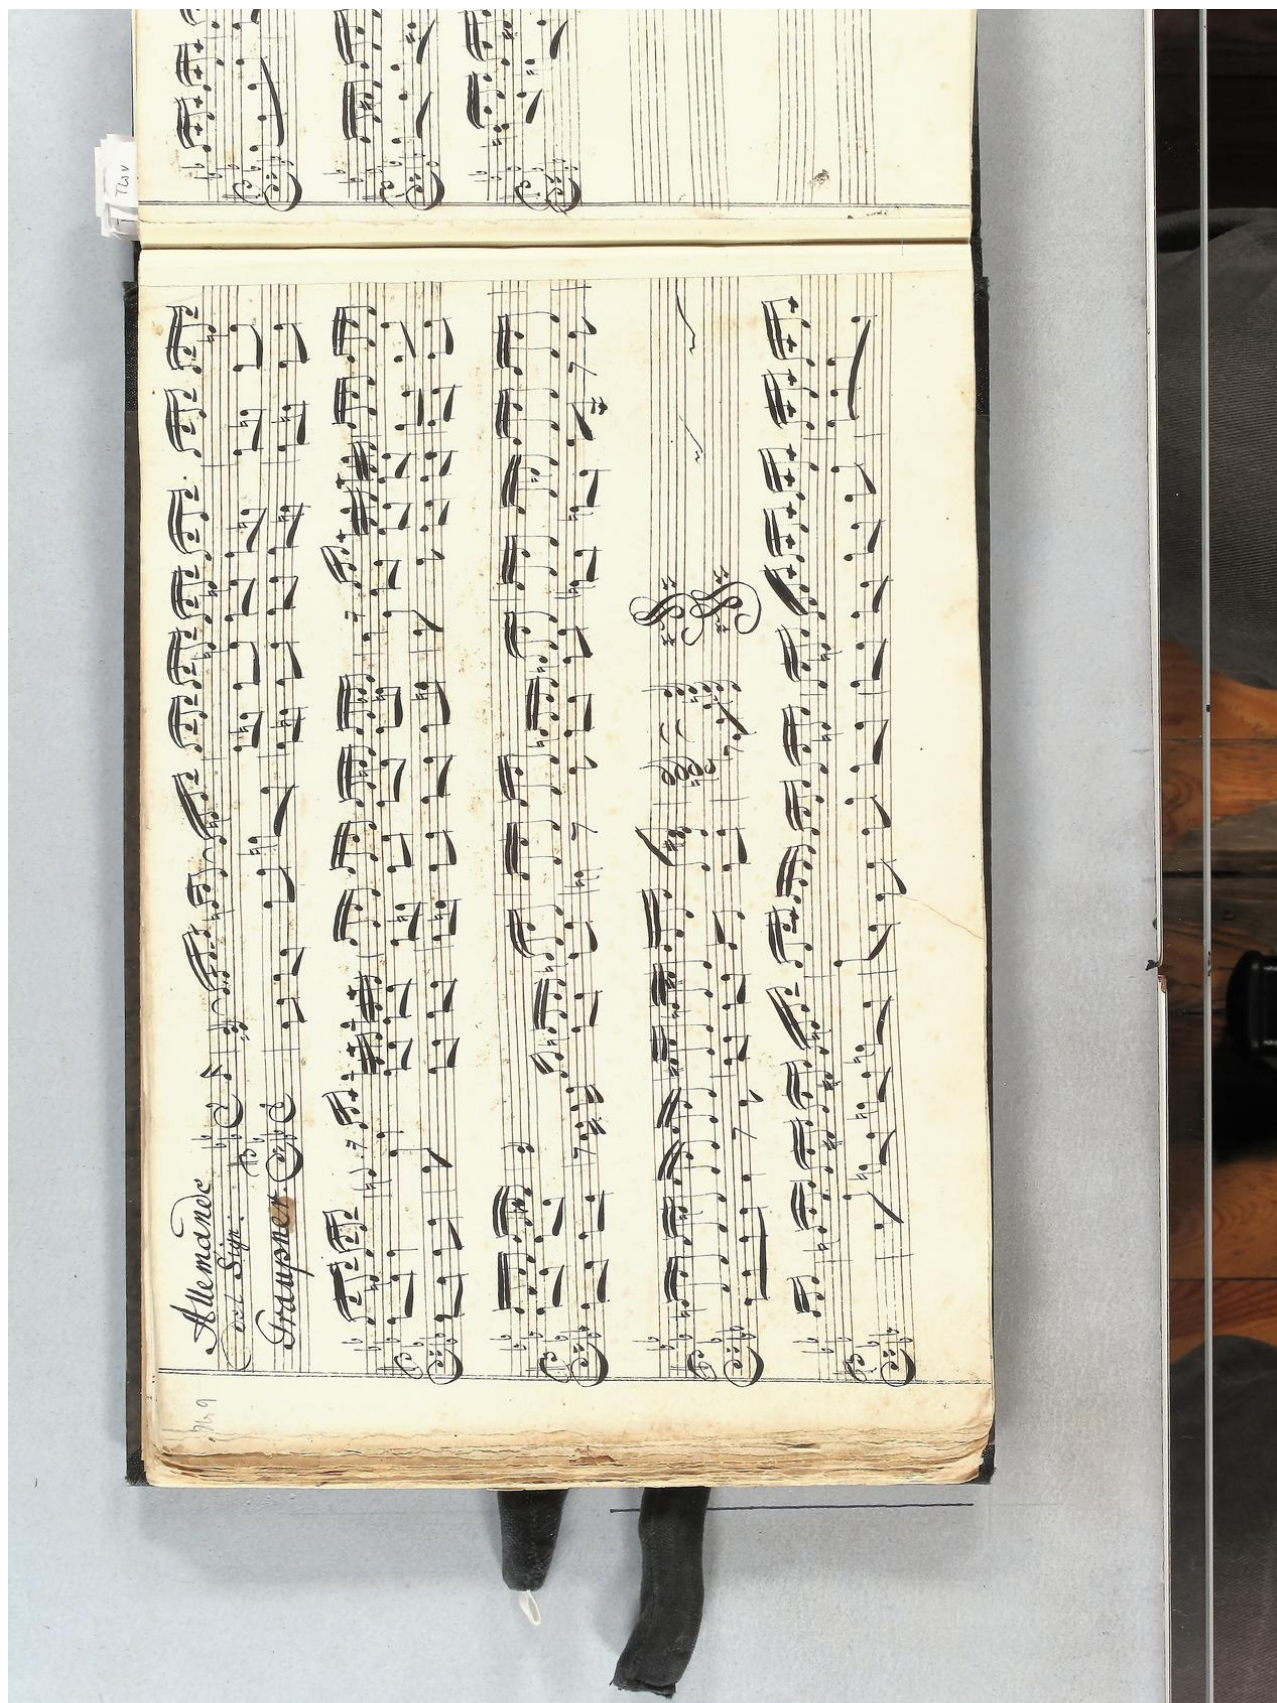 Allemande
del Sign:
Graupner